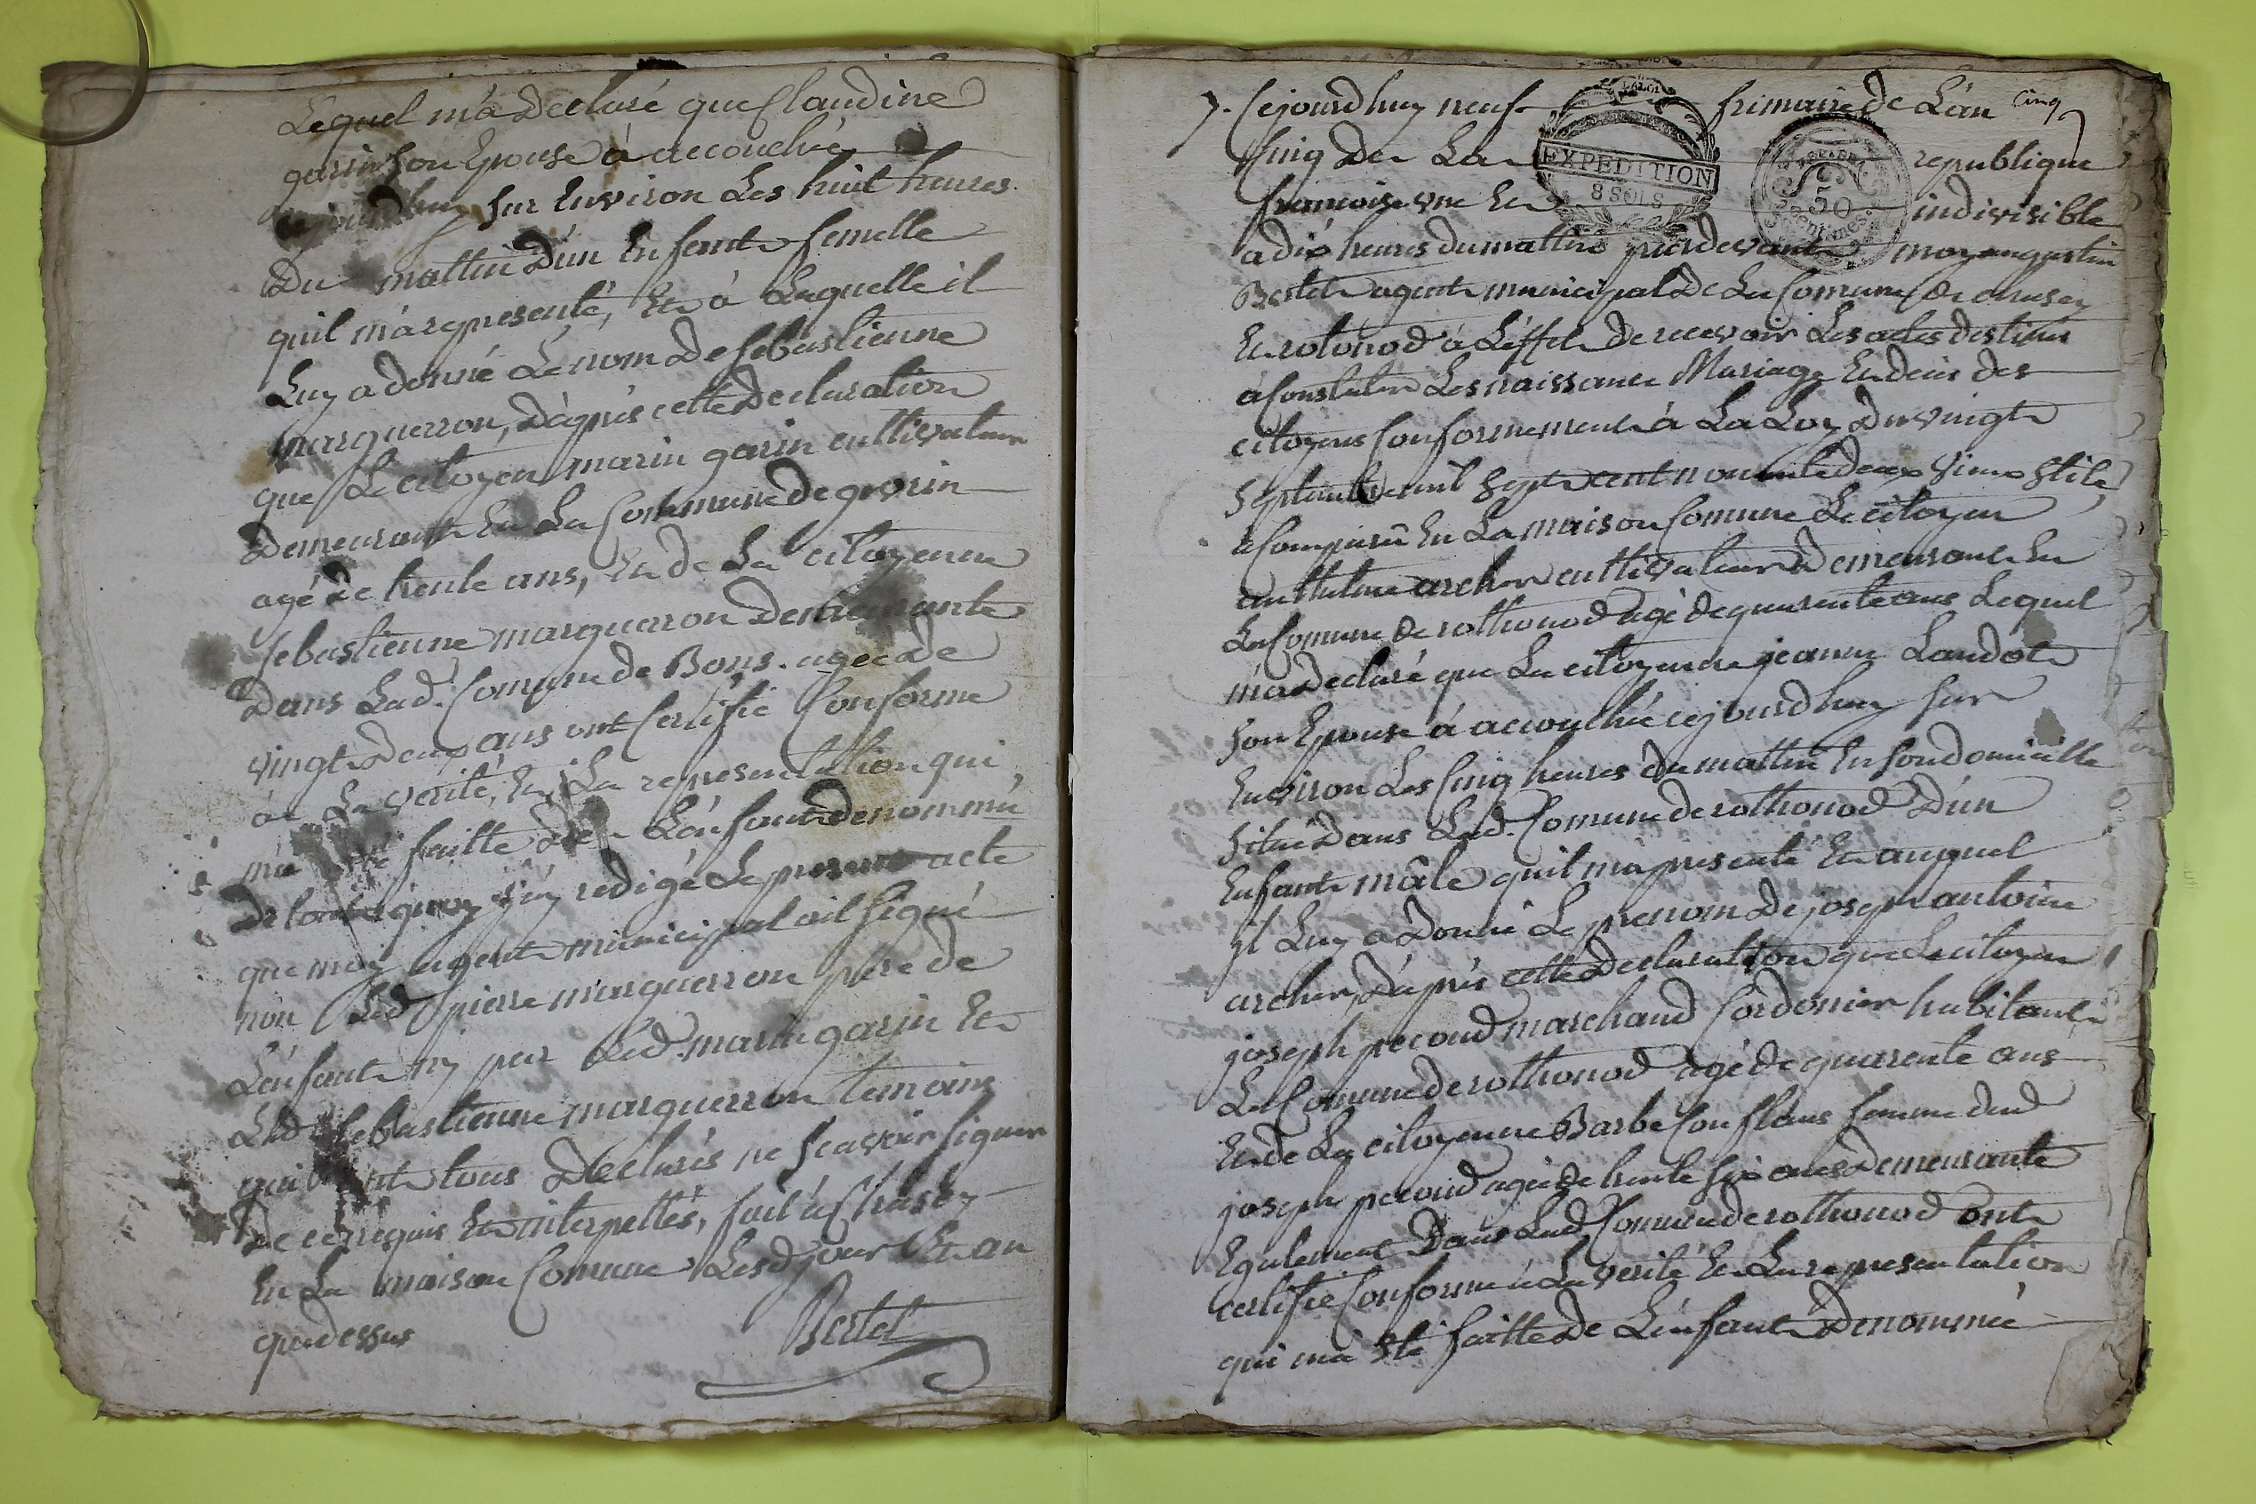 Lequel m'a Declaré que Claudine
garin son Epouse à accouchée
cejourdhuy sur Environ Les huit heures
Du mattin D'un Enfant femelle
quil m'a representé, Et à Laquelle il
Luy a donné Le nom De sebastienne
marguerron, D'après cette Declaration
que Le citoyen marin garin cultivateur
Demeurant En La Commune de grorin
agé de trente ans, Et de La citoyenne
sebastienne marguerron Demeurante
Dans Lad. Comune de Bons agee de
vingt Deux ans ont Certifié Conforme
à La verité, Et La representation qui
m'a été faitte De L'enfant denommé
De tout quoy j'ay redigé Le present acte
que moy agent municipal ait signé
non Led pierre marguerron père de
L'enfant ny par Led. marin garin Et
Lad sebastienne marguerron temoins
qui ont tous Declarés ne scavoir signer
De ce requis Et interpellés, fait à Chasey
En La maison Comune Lesd jour Et an
quedessus
Bertet
7. Cejourdhuy neuf frimaire de L'an
cinq
Cinq De La republique
francoise une Et indivisible
a dix heures du mattin pardevant moy augustin
Bertet agent municipal De La Comune de
Et rotonod à L'effet De recevoir Les actes destinés
à Constater Les naissance Mariage Et deces des
citoyens Conformement à La Loy Du vingt
septembre mil sept cent nonante deux vieux stile
a Comparu En La maison Comune Le citoyen
anthelme archer cultivateur Demeurant En
La Comune de rothonod agé de quarente ans Lequel
m'a Declaré que La citoyenne jeanne Landot
son Epouse à accouchée cejourdhuy sur
Environ Les Cinq heures du mattin En son domicille
situé Dans Lad. Comune de rothonod D'un
Enfant mâle quil m'a presenté Et auquel
il Luy a Donné Le prenom De joseph antoine
archer, D'après cette Declaration que Le citoyen
joseph pecoud marchand Cordonier habitant
La Comune de rothonod agé de quarente ans
Et de La citoyenne Barbe Conflans femme dud
joseph pecoud agée de trente six ans Demeurante
Egalement Dans Lad Comune de rothonod ont
certifié Conforme à La verité Et La representation
qui m'a été faitte De L'enfant Denommé
LA LOI
EXPEDITION
8 SOLS
50
Centimes.